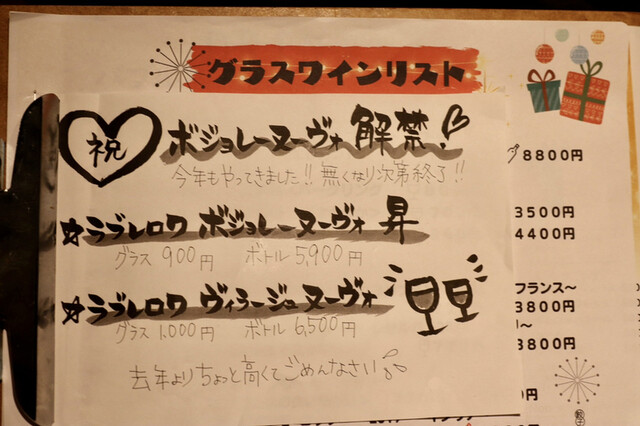 グラスワインリスト
祝
ボジョレーヌーヴォ 解禁!
今年もやってきました!! 無くなり次第終了!!
8800円
☆ラブレロワ ボジョレーヌーヴォ 昇
グラス 900円 ボトル 5,900円
3500円
4400円
☆ラブレロワ ヴィラージュ ヌーヴォ
グラス 1,000円 ボトル 6,500円
フランス～
3800円
3800円
去年よりちょっと高くてごめんなさい
円